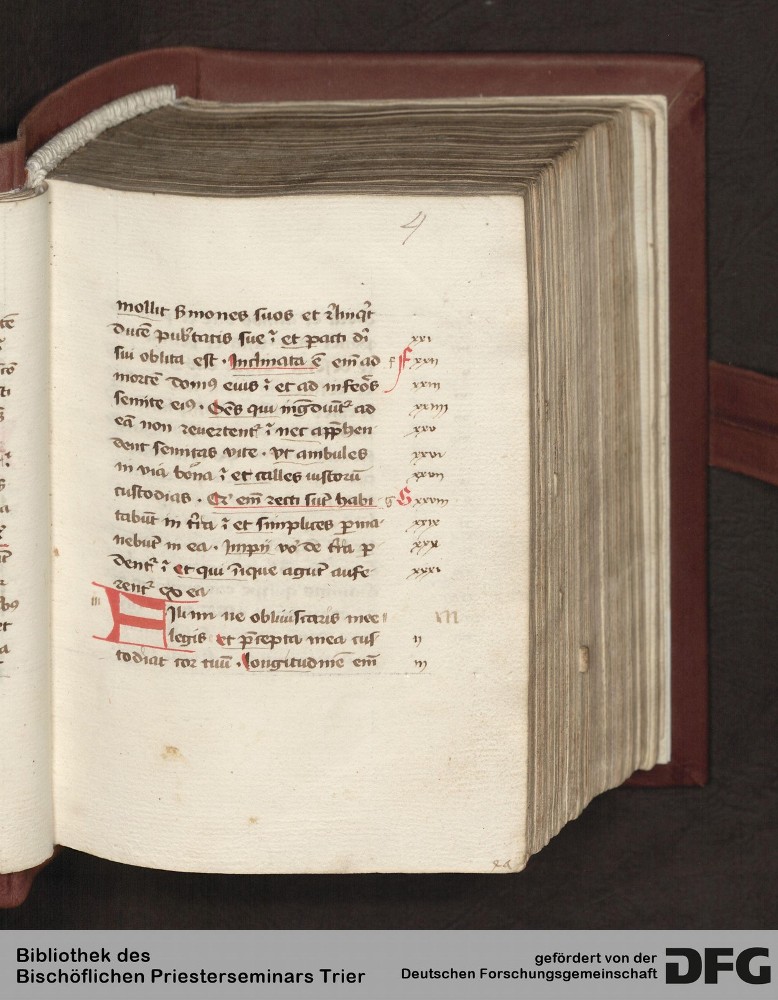 4
mollit s̄mones suos et r̄linq̄t
ducē pub̄tatis sue ⁊ et pacti dī
sui oblita est · Inclinata ē em̄ ad
mortē domꝰ eius ⁊ et ad infeōs
semite eiꝰ · Oēs qui inḡdiūt᷑ ad
eā non revertent᷑ ⁊ nec app̄hen
dent semitas vite · Vt ambules
in via bona ⁊ et calles iustorū
custodias · Qr̄ em̄ recti sūt habi
tabūt in t̄ra ⁊ et simplices ꝑma
nebūt in ea · Impii vo᷑ de t̄ra ꝑ
dent᷑ ⁊ et qui īique agūt aufe
rent᷑ ex ea
Fili mi ne obliuiscaris mee
legis et p̄cepta mea cus
todiat cor tuū · longitudinē em̄
xxi
f xxii
xxiii
xxiiii
xxv
xxvi
xxvii
g G xxviii
xxix
xxx
xxxi
iii
m
ii
iii
Bibliothek des
Bischöflichen Priesterseminars Trier
gefördert von der
Deutschen Forschungsgemeinschaft
DFG